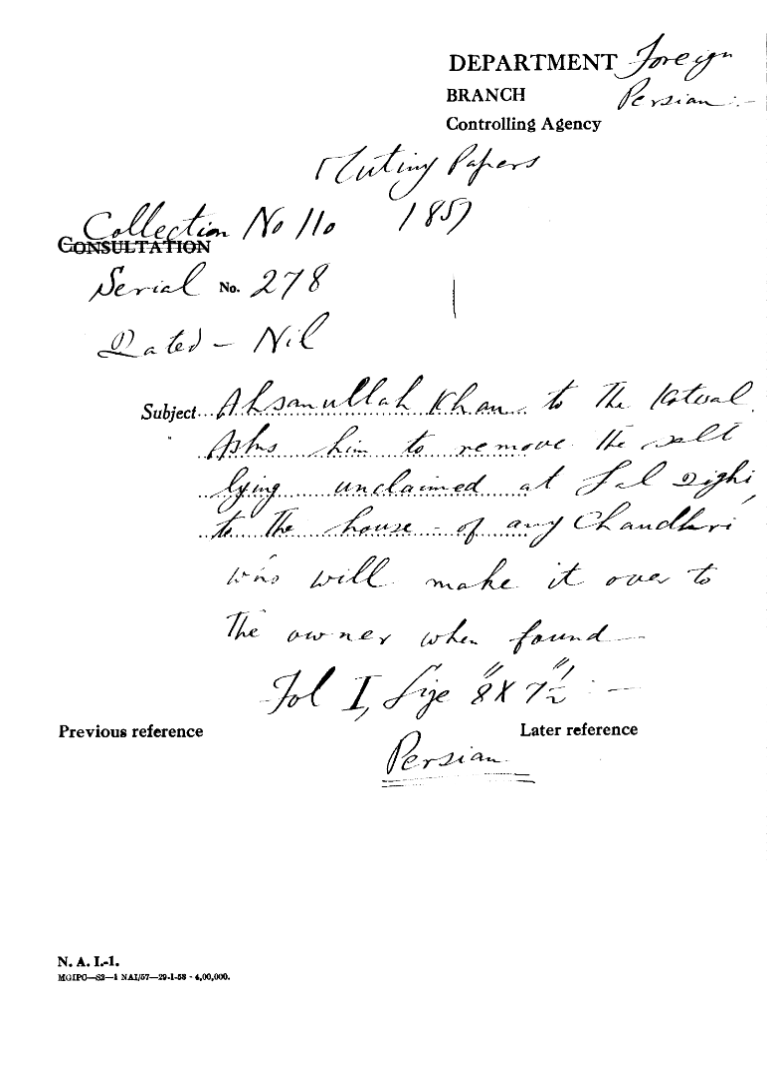 DEPARTMENT Foreign
BRANCH Persian :-
Controlling Agency
Mutiny Papers
Collection No 110 1857
CONSULTATION
Serial No. 278
Dated - Nil
Subject... Ahsanullah Khan to the Kotwal.
Asks him to remove the salt
lying unclaimed at Lal Dighi,
to the house - of any Chaudhri
who will make it over to
the owner when found —
Fol I, Size "8 X 7½" : —
Previous reference
Later reference
Persian.
N. A. I.-1.
MGIPC—S3—1 NAI/57—29-1-58 - 4,00,000.